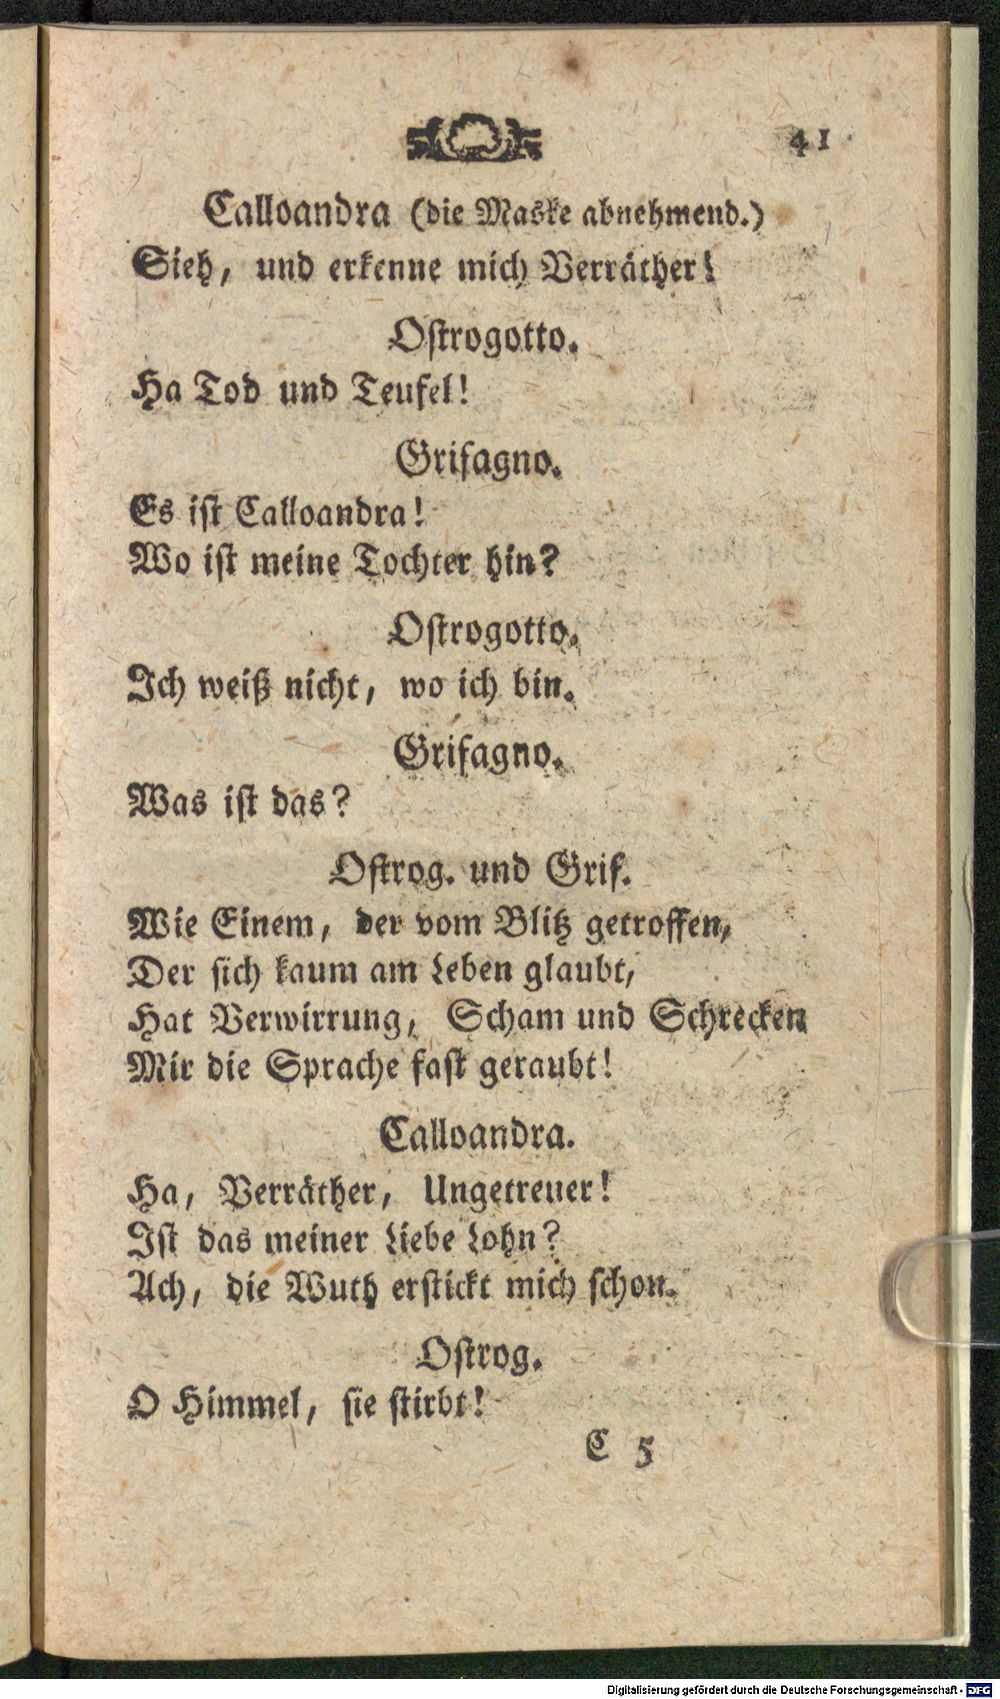 41
Calloandra (die Maske abnehmend.)
Sieh, und erkenne mich Verräther!
Ostrogotto.
Ha Tod und Teufel!
Grifagno.
Es ist Calloandra!
Wo ist meine Tochter hin?
Ostrogotto.
Ich weiß nicht, wo ich bin.
Grifagno.
Was ist das?
Ostrog. und Grif.
Wie Einem, der vom Blitz getroffen,
Der sich kaum am Leben glaubt,
Hat Verwirrung, Scham und Schrecken
Mir die Sprache fast geraubt!
Calloandra.
Ha, Verräther, Ungetreuer!
Ist das meiner Liebe Lohn?
Ach, die Wuth erstickt mich schon.
Ostrog.
O Himmel, sie stirbt!
C 5
Digitalisierung gefördert durch die Deutsche Forschungsgemeinschaft - DFG